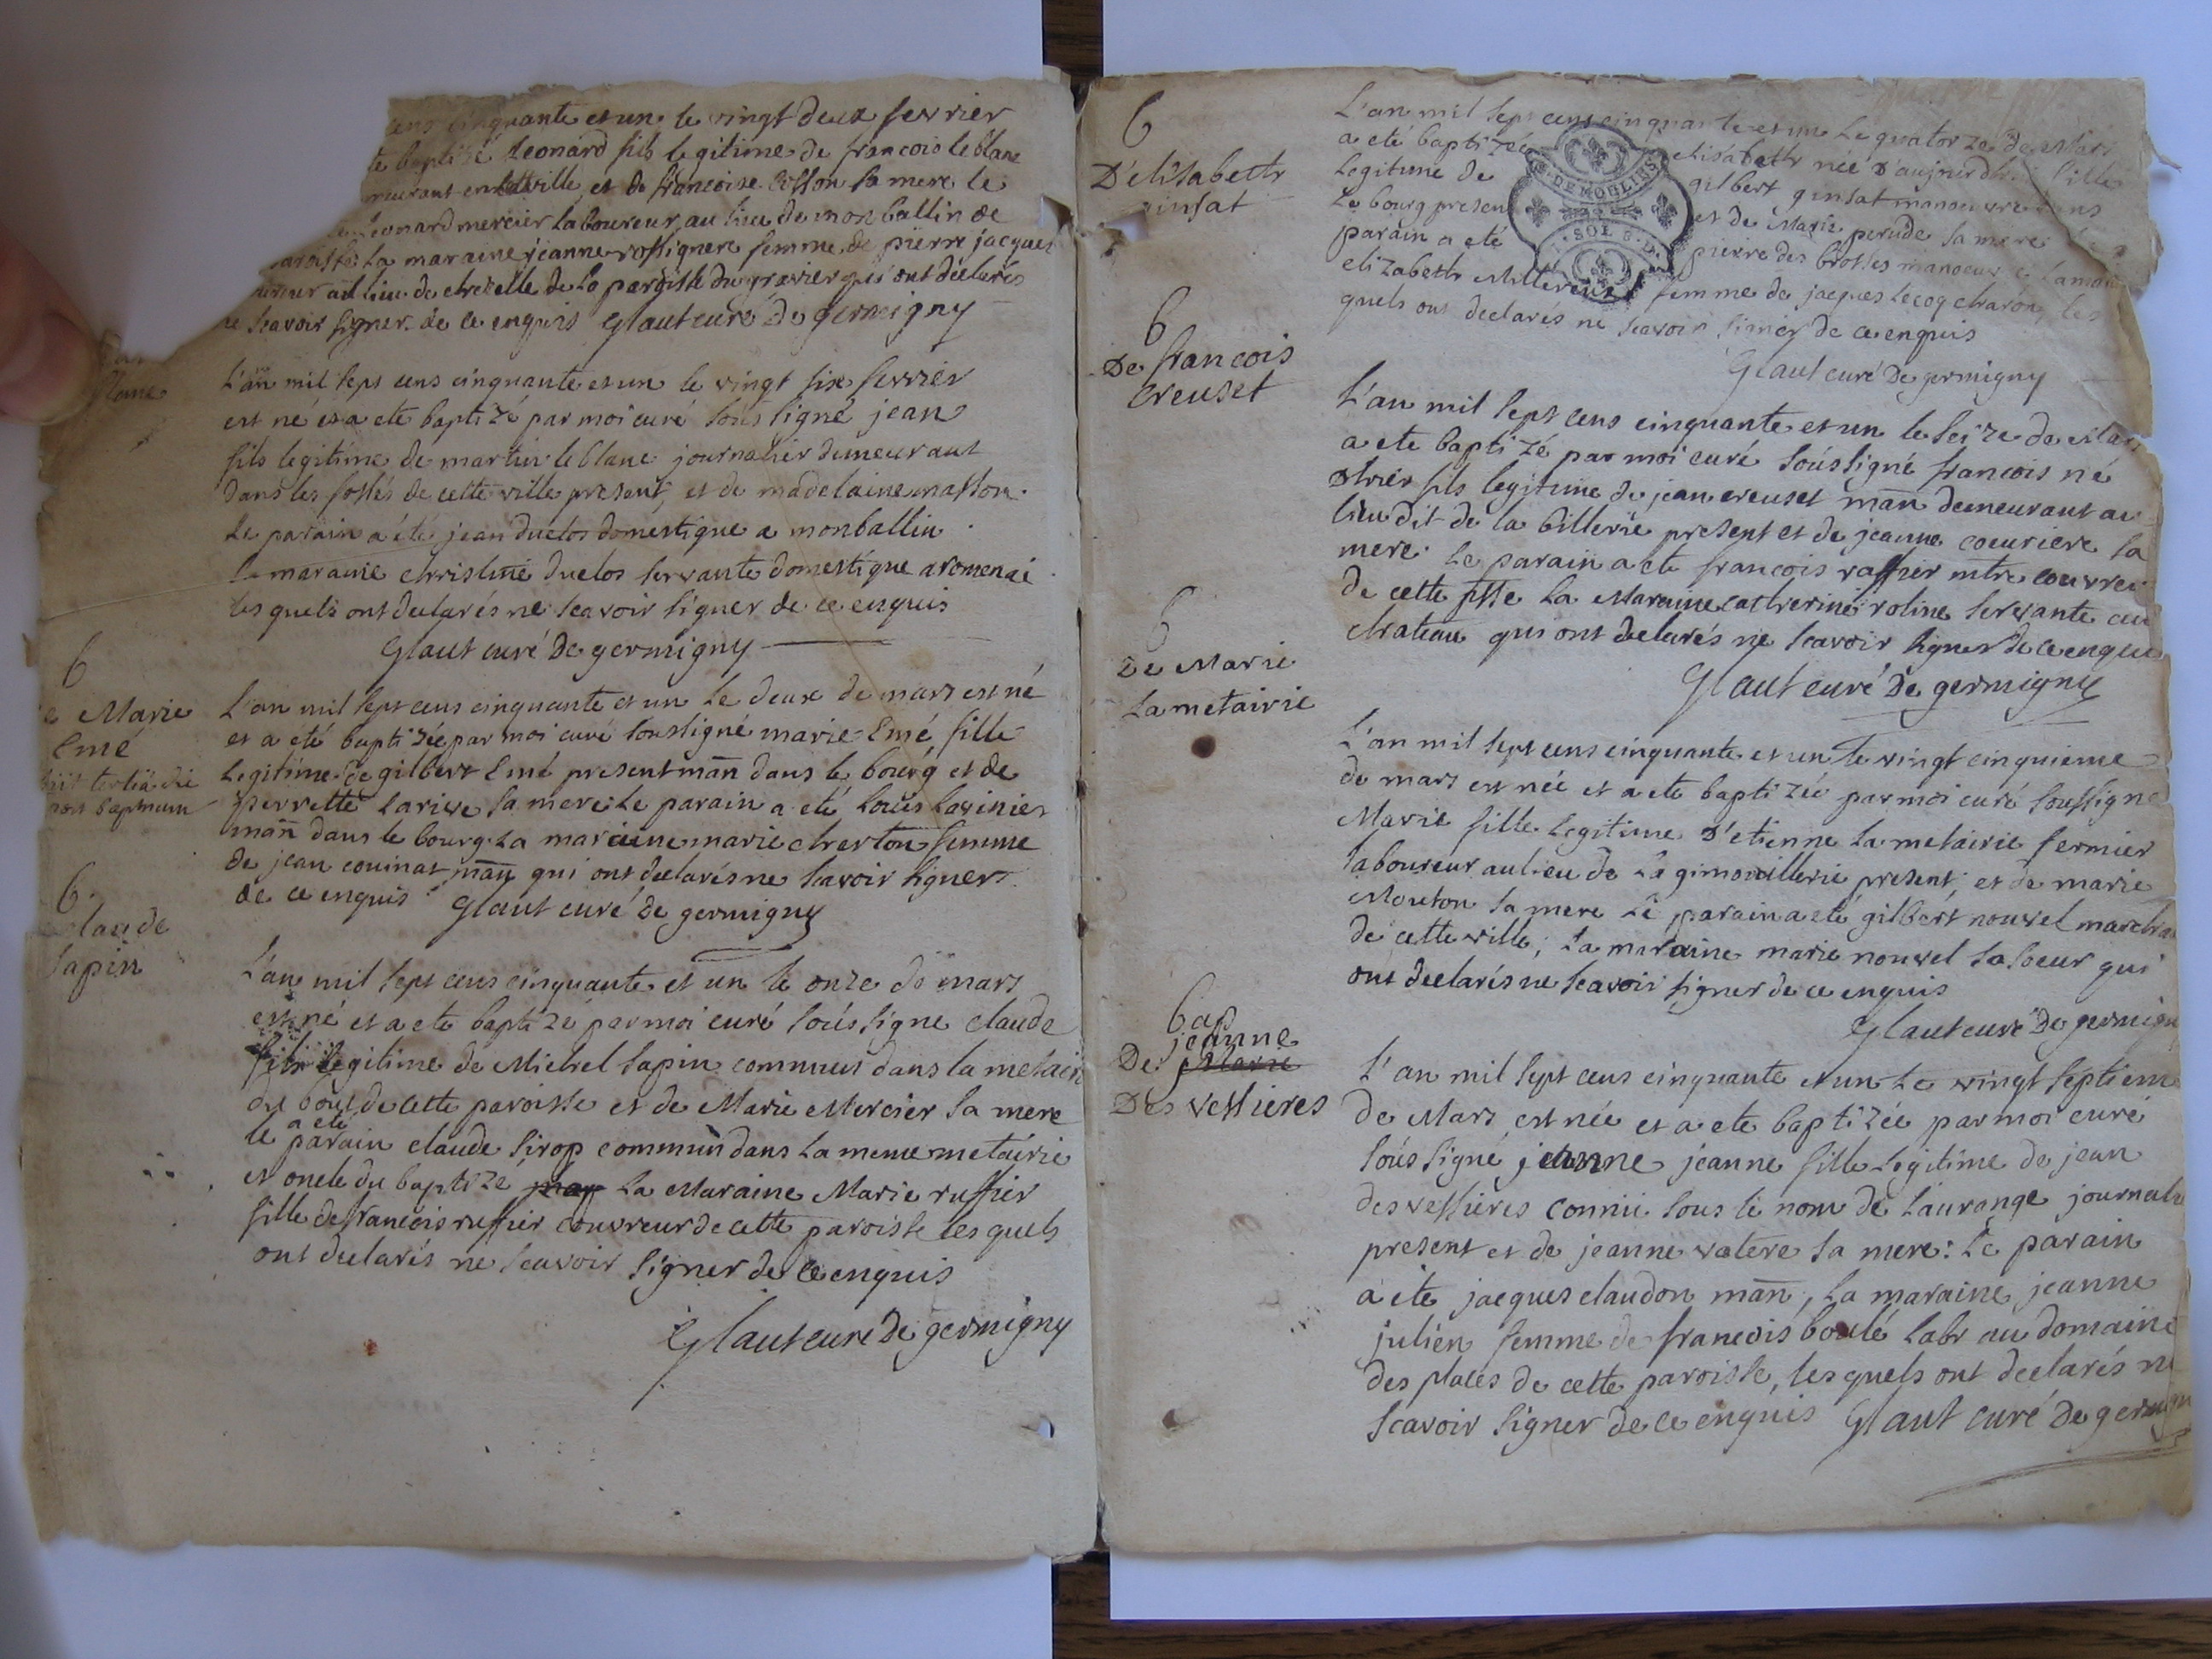 cens cinquante et un le vingt deux fevrier
te baptisé Leonard fils legitime de francois le blanc
meurant en ville et de francoise sa mere le
Leonard mercier laboureur au lieu de monballin de
paroisse la maraine jeanne rossignere femme de pierre jacques
au lieu de de la paroisse du gravier qui ont déclarés
ne scavoir signer de ce enquis Glaut curé de germigny
blanc
L'an mil sept cens cinquante et un le vingt six fevrier
est né et a ete baptizé par moi curé sous signé jean
fils legitime de martin le blanc journalier demeurant
dans les fossés de cette ville present, et de madelaine masson.
Le parain a été jean duclos domestique a monballin
la maraine christine duclos servante domestique a romenai
les quels ont declarés ne scavoir signer de ce enquis
Glaut curé de germigny
6
e Marie
Emé
L'an mil sept cens cinquante et un Le deux de mars est né
et a eté baptizée par moi curé soussigné marie Emé fille
Legitime de gilbert Emé present man dans le bourg et de
perrette Larive sa mere Le parain a eté Louis Lavinier
man dans le bourg. La maraine marie cherton femme
de jean couinat man qui ont declarés ne scavoir signer
de ce enquis Glaut curé de germigny
6.
claude
sapin
L'an mil sept cens cinquante et un le onze de mars
est né et a ete baptizé par moi curé sous signe claude
fils legitime de Michel sapin commun dans la metairie
du bout de cette paroisse et de Marie Mercier sa mere
a eté
le parain claude sirop commun dans la meme metairie
et oncle du baptizé La Maraine Marie ruffier
fille de francois ruffier couvreur de cette paroisse les quels
ont declarés ne scavoir signer de ce enquis
Glaut cure de germigny
6
D'elisabeth
ginsat
L'an mil sept cens cinquante et un Le quatorze de Mars
a eté baptizée elisabeth née d'aujourdhui fille
Legitime de gilbert ginsat manoeuvre dans
Le bourg present et de Marie perude sa mere Le
parain a eté pierre des brosses manoeuvre La
elizabeth Millereux femme de jacques Lecoq charon, les
quels ont declarés ne scavoir signer de ce enquis
Glaut curé De germigny
G. DE MOULINS
SOL 8. D.
6
De francois
creuset
L'an mil sept cens cinquante et un le seize de Mars
a ete baptizé par moi curé sous signé francois né
d'hier fils legitime de jean creuset man demeurant au
lieu dit de la billerie present et de jeanne couriere sa
mere. Le parain a ete francois raffier mtre couvreur
de cette psse La Maraine catherine roline servante au
chateau qui ont declarés ne scavoir signer de ce enquis
Glaut curé De germigny
6
De Marie
Lametairie
L'an mil sept cens cinquante et un le vingt cinquieme
de mars est née et a ete baptizée par moi curé soussigné
Marie fille Legitime d'etienne La metairie fermier
laboureur au lieu de La gimouillerie present, et de marie
Mouton sa mere Le parain a eté gilbert nouvel marchand
de cette ville, La maraine marie nouvel sa soeur qui
ont declarés ne scavoir signer de ce enquis
Glaut curé De germigny
bap
jeanne
De Marie
Des vessieres
L'an mil sept cens cinquante et un Le vingt septieme
de Mars est née et a ete baptizée par moi curé
sous signé jeanne jeanne fille Legitime de jean
des vessieres connu sous le nom de Laurange journalier
present et de jeanne vatere sa mere: Le parain
a ete jacques claudon man, La maraine jeanne
julien femme de francois boulé Labr au domaine
des places de cette paroisse, les quels ont declarés ne
scavoir signer de ce enquis Glaut curé De germigny